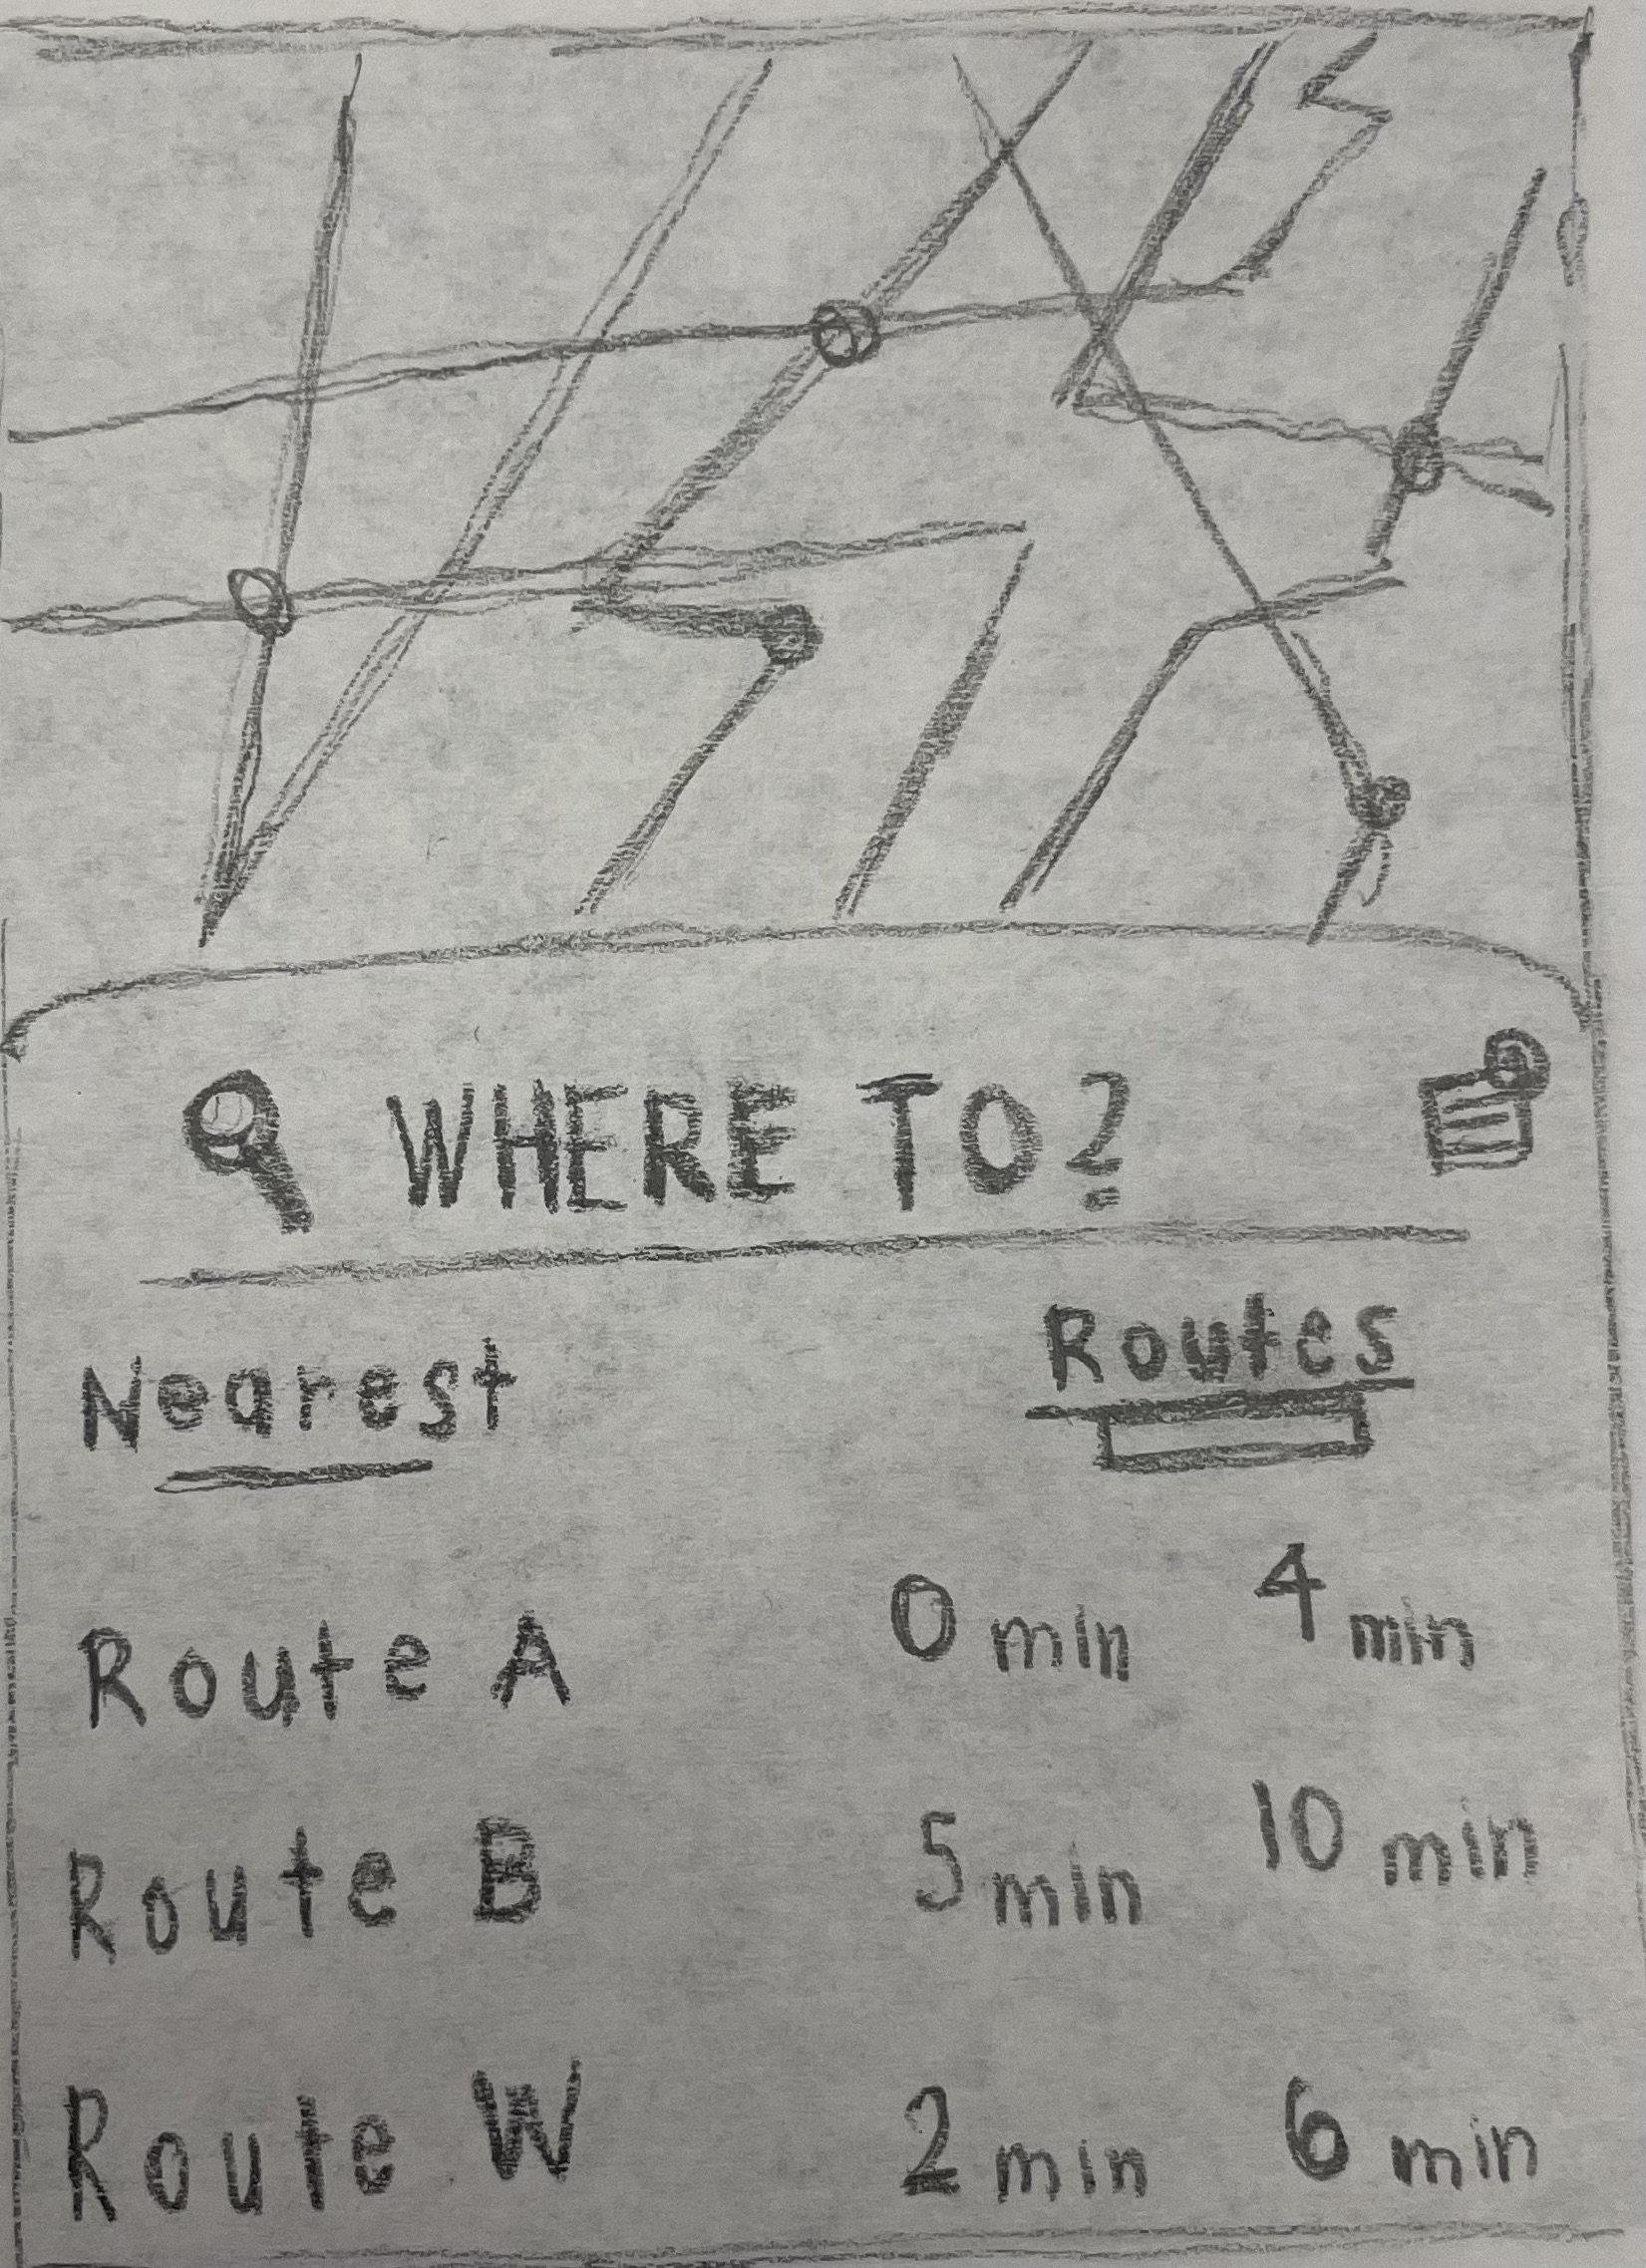 WHERE TO?
Nearest Routes
Route A 0 min 4 min
Route B 5 min 10 min
Route W 2 min 6 min